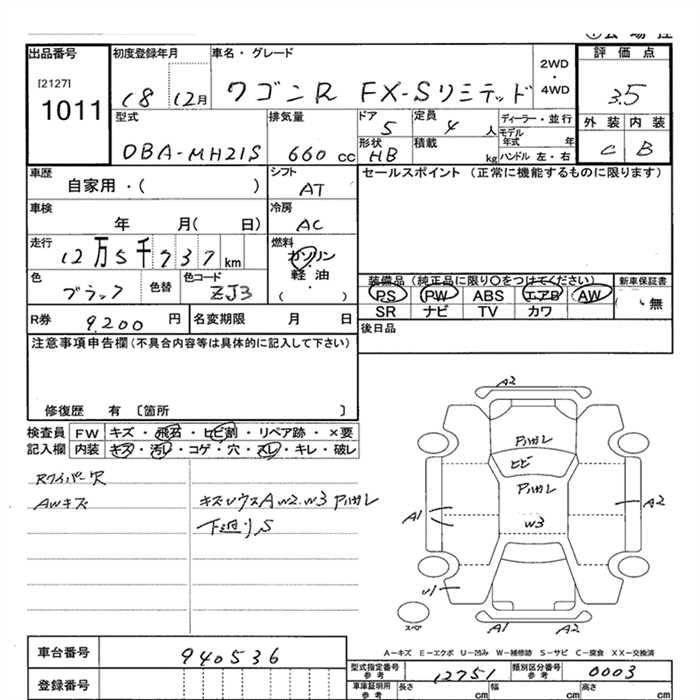 出品番号 初度登録年月 車名・グレード 評価点
[2127]
1011
18 12月 ワゴンR FX-Sリミテッド 2WD・4WD 3.5
型式 排気量 ドア 定員 ディーラー・並行 外装 内装
DBA-MH21S 660 cc 5 4 人 モデル年式 年 C B
形状 積載 ハンドル 左・右
HB kg
車歴 シフト セールスポイント (正常に機能するものに限ります)
自家用・( ) AT
車検 冷房
年 月( 日) AC
走行 燃料
12万5千737 km ガソリン
軽油
・
( )
色 色替 色コード
ブラック ZJ3
装備品 (純正品に限り〇をつけてください) 新車保証書
PS PW ABS エアB AW 無
SR ナビ TV カワ
R券 9,200 円 名変期限 月 日 後日品
注意事項申告欄(不具合内容等は具体的に記入して下さい)
修復歴 有 〔箇所 〕
検査員 FW キズ・飛石・ヒビ割・リペア跡・×要
記入欄 内装 キズ・汚レ・コゲ・穴・スレ・キレ・破レ
Rワイパー穴
AWキズ キズUウスA W2.W3 アハガレ
下廻りS
A2
アハガレ
ヒビ
アハガレ
A1 W3 A2
U1
スペア A1 A2
A-キズ E-エクボ U-凹み W-補修跡 S-サビ C-腐食 XX-交換済
車台番号 940536
型式指定番号 参考 12751 類別区分番号 参考 0003
登録番号
車庫証明用 参考 長さ cm 幅 cm 高さ cm